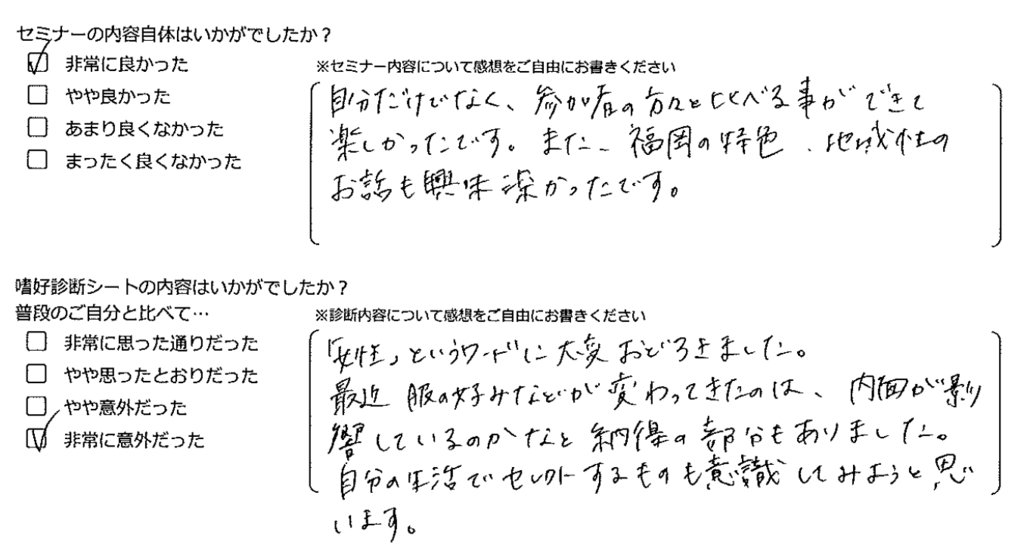 セミナーの内容自体はいかがでしたか？
☑ 非常に良かった
☐ やや良かった
☐ あまり良くなかった
☐ まったく良くなかった
※セミナー内容について感想をご自由にお書きください
自分だけでなく、参加者の方々と比べる事ができて
楽しかったです。また、福岡の特色、地域性の
お話も興味深かったです。
嗜好診断シートの内容はいかがでしたか？
普段のご自分と比べて…
☐ 非常に思った通りだった
☐ やや思ったとおりだった
☐ やや意外だった
☑ 非常に意外だった
※診断内容について感想をご自由にお書きください
「女性」というワードに大変おどろきました。
最近服の好みなどが変わってきたのは、内面が影
響しているのかなと納得の部分もありました。
自分の生活でセレクトするものも意識してみようと思
います。